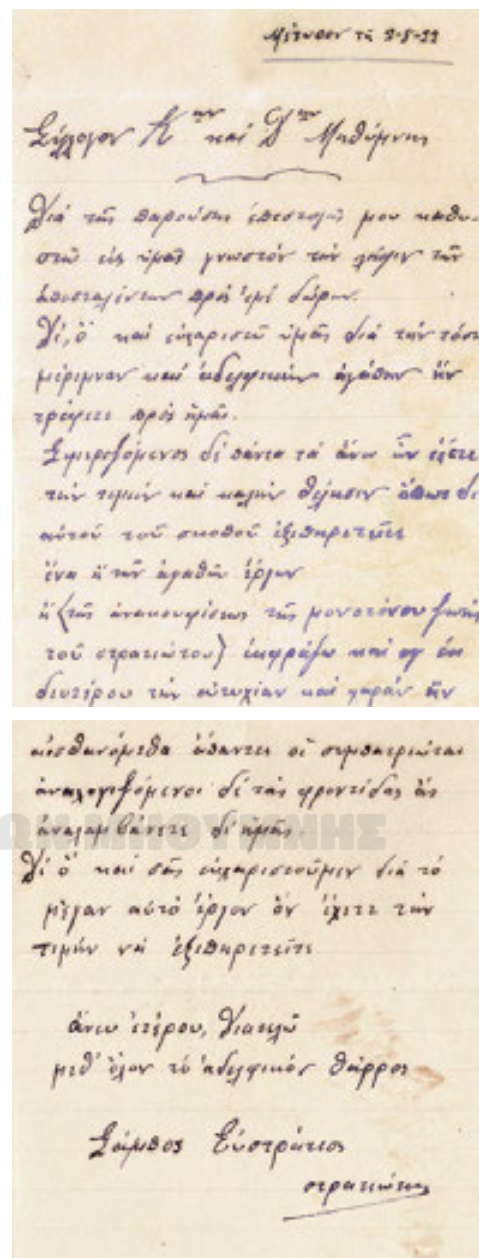 Μέτωπον τῇ 2-5-22
Σύλλογον Κων καὶ Δων Μηθύμνης
Διά τῆς παρούσης ἐπιστολῆς μου καθι-
στῶ εἰς ὑμᾶς γνωστόν τήν λῆψιν τῶν
ἀποσταλέντων πρός ἐμέ δώρων.
Δι' ὅ καί εὐχαριστῶ ὑμᾶς διά τήν τόσην
μέριμναν καί ἀδελφικήν ἀγάπην ἥν
τρέφετε πρός ἡμᾶς.
δέ πάντα τά ἄνω ὧν εἴχετε
τήν τιμήν καί καλήν θέλησιν ὅπως δι'
αὐτοῦ τοῦ σκοποῦ ἐξυπηρετεῖτε
ἕνα ἐκ τῶν ἀγαθῶν ἔργων
(τῆς ἀνακουφίσεως τῆς μονοτόνου ζωῆς
τοῦ στρατιώτου) ἐκφράζω καί ἐκ
δευτέρου τήν εὐτυχίαν καί χαράν ἥν
αἰσθανόμεθα ἅπαντες οἱ συμπατριῶται
ἀναλογιζόμενοι δέ τάς φροντίδας ἅς
ἀναλαμβάνετε δι' ἡμᾶς.
Δι' ὅ καί σᾶς εὐχαριστοῦμεν διά τό
μέγαν αὐτό ἔργον ὅν ἔχετε τήν
τιμήν νά ἐξυπηρετεῖτε
ἄνευ ἑτέρου, Διατελῶ
μεθ' ὅλον τό ἀδελφικόν θάρρος
Σάμπος Εὐστράτιος
στρατιώτης
ΩΝ ΜΠΟΥΜΝΗΣ